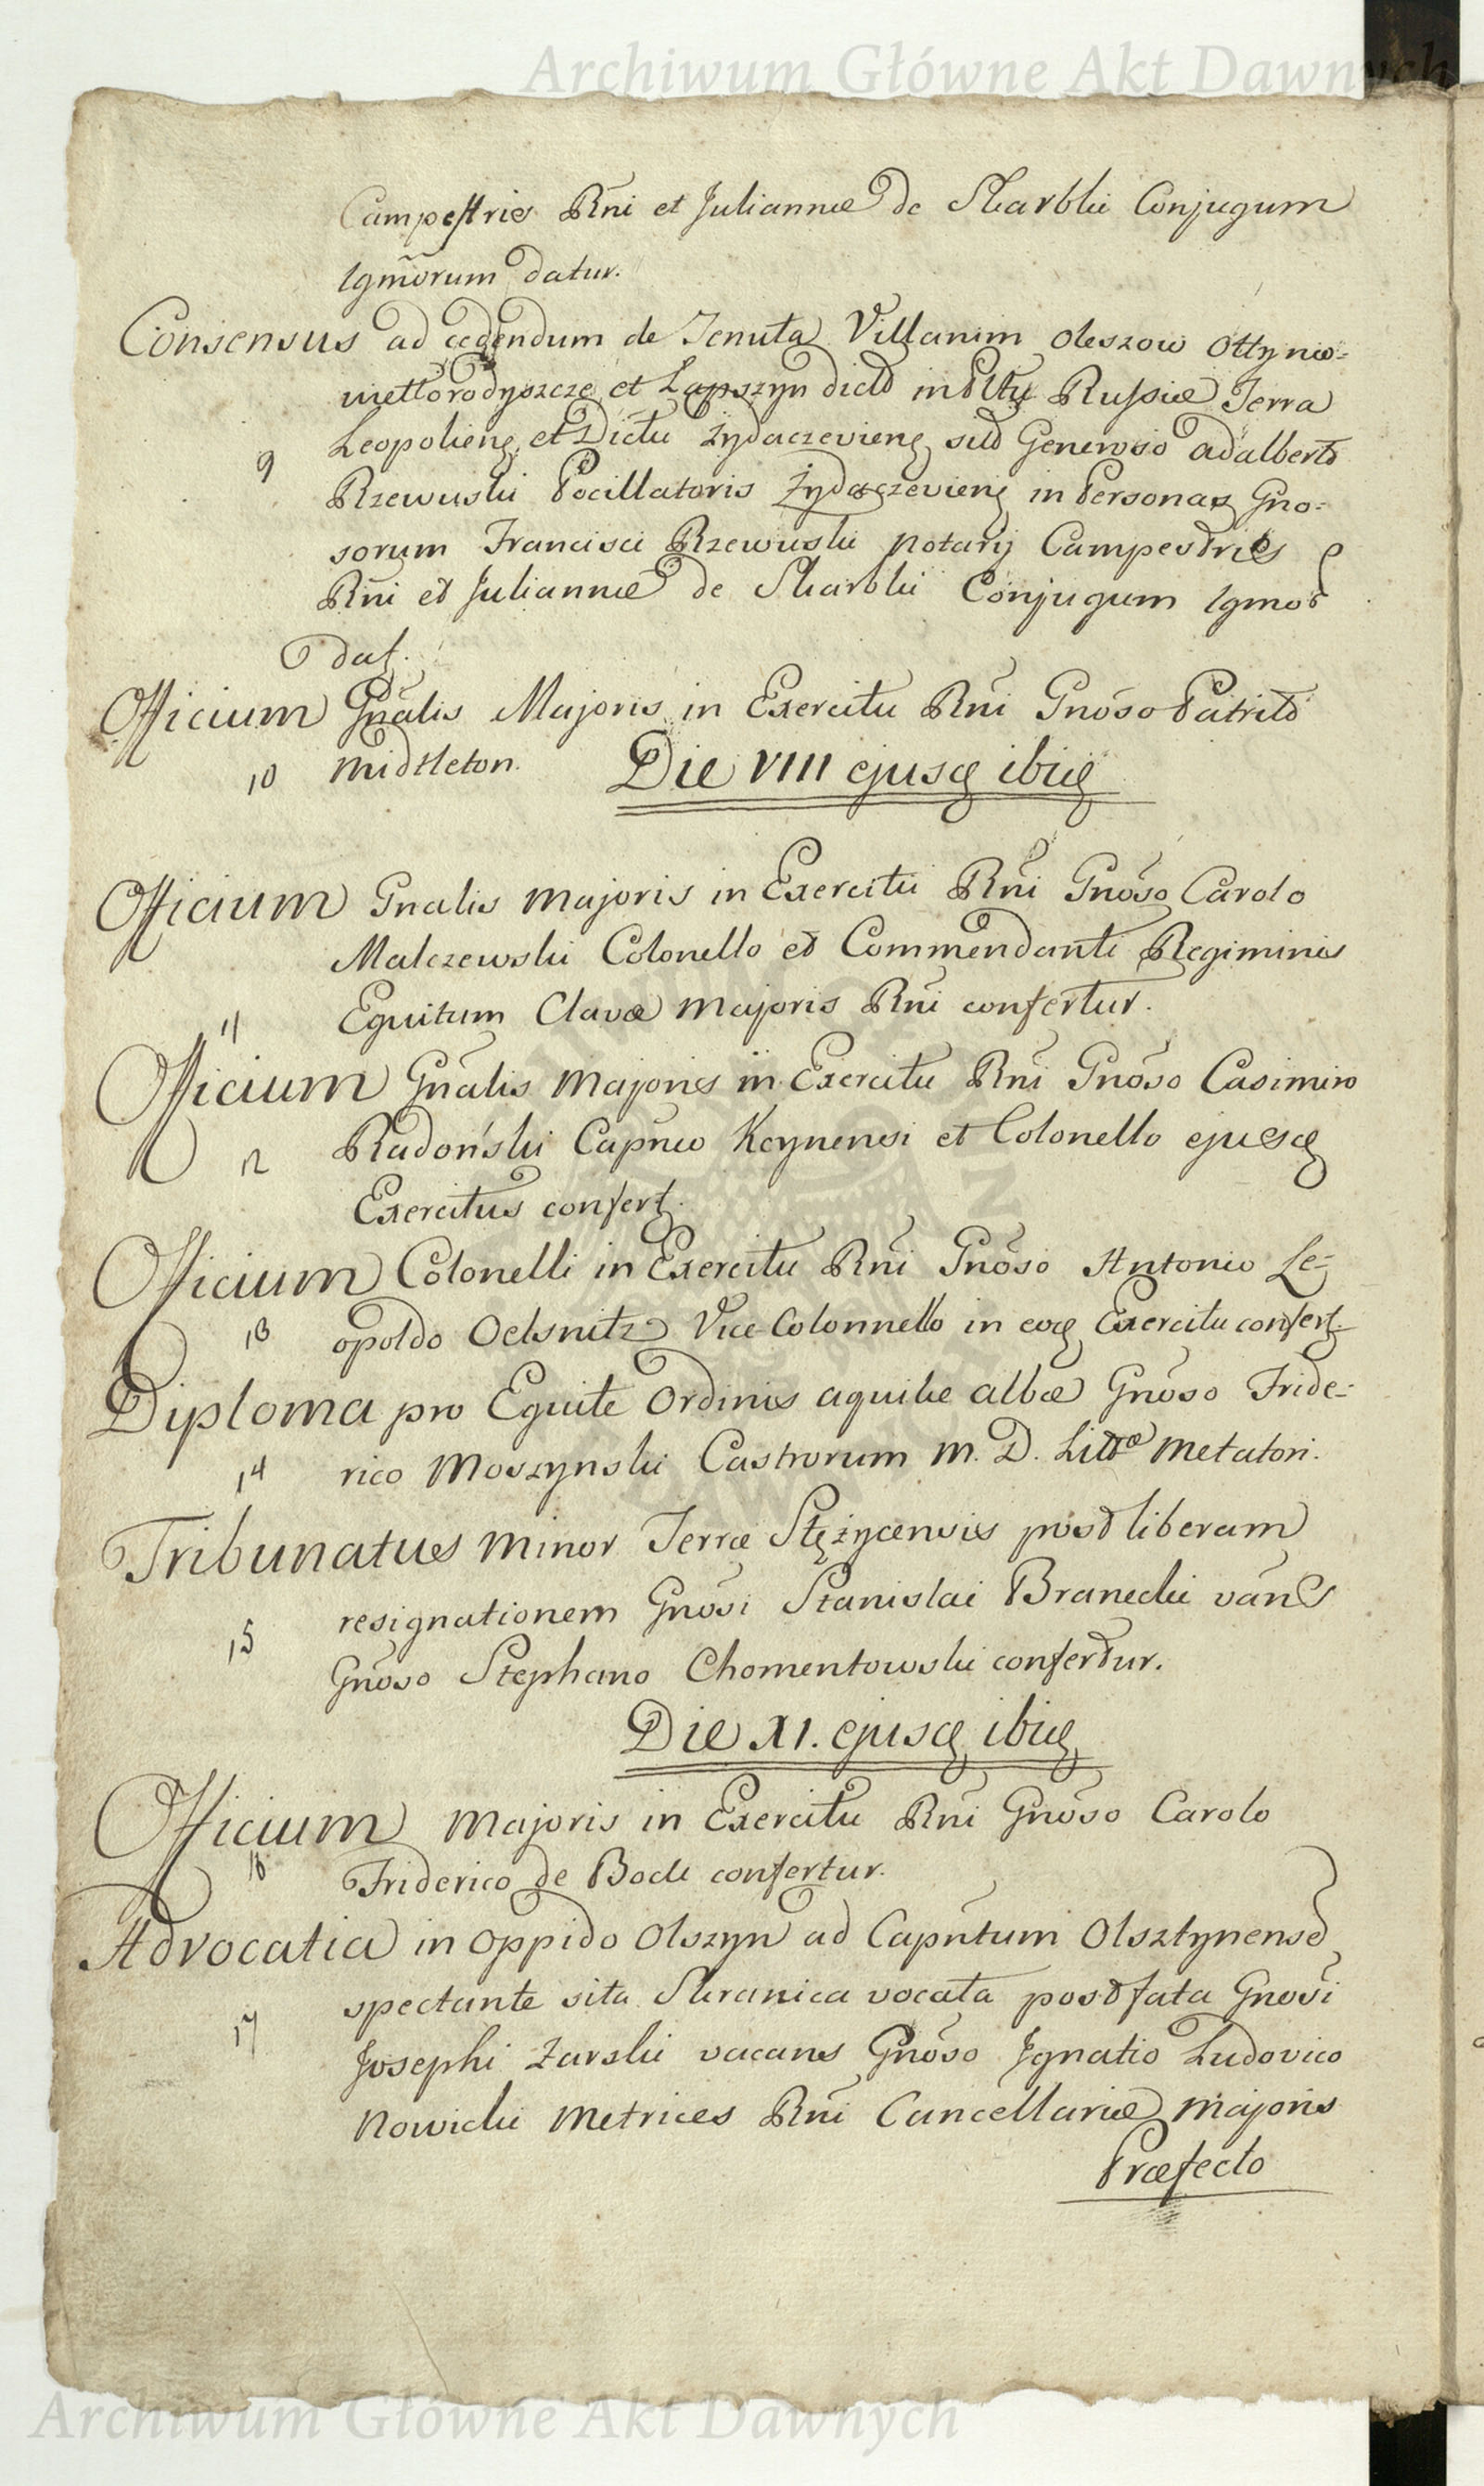 Archiwum Główne Akt Dawnych
Campestris Rñi et Juliannæ de Skarbki Conjugum
Igmõrum datur.
Consensus ad cedendum de Tenuta Villarum Oleszow Ottynio-
et Łapszyn dict in Pltu Russiæ Terra
Leopoliens et Dictu Żydaczeviens sit Generoso Adalberto
9
Rzewuski Pocillatoris Żydaczeviens in Personas Gno-
sorum Francisci Rzewuski Notarij Campestris
Rñi et Juliannæ de Skarbki Conjugum Igmor
dat.
Officium Gñalis Majoris in Exercitu Rñi Gnõso Patritio
10 Midtleton.
Die VIII ejusq ibiq
Officium Gnalis Majoris in Exercitu Rñi Gnõso Carolo
Malczewski Colonello et Commendanti Regiminis
Equitum Clavæ Majoris Rñi confertur.
11
Officium Gñalis Majoris in Exercitu Rñi Gnõso Casimiro
12 Radoński Capñeo Kcynensi et Colonello ejusq
Exercitus confert.
Officium Colonelli in Exercitu Rñi Gnõso Antonio Le-
13 opoldo Oelsnitz Vice-Colonnello in eoq Exercitu confert.
Diploma pro Equite Ordinis aquilæ albæ Gnõso Fride-
14 rico Moszynski Castrorum M. D. Littæ Metatori.
Tribunatus Minor Terræ Stężycensis post liberam
resignationem Gnõsi Stanislai Branecki vans
15
Gñoso Stephano Chomentowski confertur.
Die XI. ejusq ibiq
Officium Majoris in Exercitu Rñi Gnõso Carolo
16 Friderico de Bock confertur.
Advocatia in Oppido Olszyn ad Capñtum Olsztynense
spectante sita Skranica vocata post fata Gnosi
17
Josephi Żarski vacans Gñoso Ignatio Ludovico
Nowicki Metrices Rñi Cancellariæ Majoris
Præfecto
Archiwum Główne Akt Dawnych